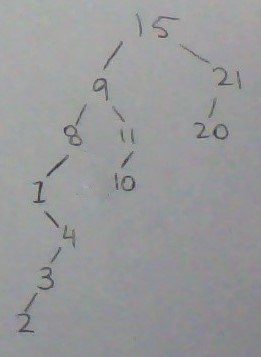 15
9 21
8 11 20
1 10
4
3
2